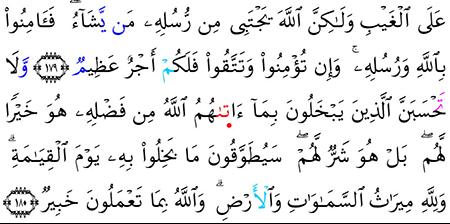 عَلَى ٱلْغَيْبِ وَلَٰكِنَّ ٱللَّهَ يَجْتَبِى مِن رُّسُلِهِۦ مَن يَّشَآءُ ۖ فَـَٔامِنُوا۟
بِٱللَّهِ وَرُسُلِهِۦ ۚ وَإِن تُؤْمِنُوا۟ وَتَتَّقُوا۟ فَلَكُمْ أَجْرٌ عَظِيمٌ ١٧٩ وَّلَا
تَحْسَبَنَّ ٱلَّذِينَ يَبْخَلُونَ بِمَآ ءَاتَىٰهُمُ ٱللَّهُ مِن فَضْلِهِۦ هُوَ خَيْرًا
لَّهُم ۖ بَلْ هُوَ شَرٌّ لَّهُمْ ۖ سَيُطَوَّقُونَ مَا بَخِلُوا۟ بِهِۦ يَوْمَ ٱلْقِيَٰمَةِ ۗ
وَلِلَّهِ مِيرَٰثُ ٱلسَّمَٰوَٰتِ وَٱلْأَرْضِ ۗ وَٱللَّهُ بِمَا تَعْمَلُونَ خَبِيرٌ ١٨٠